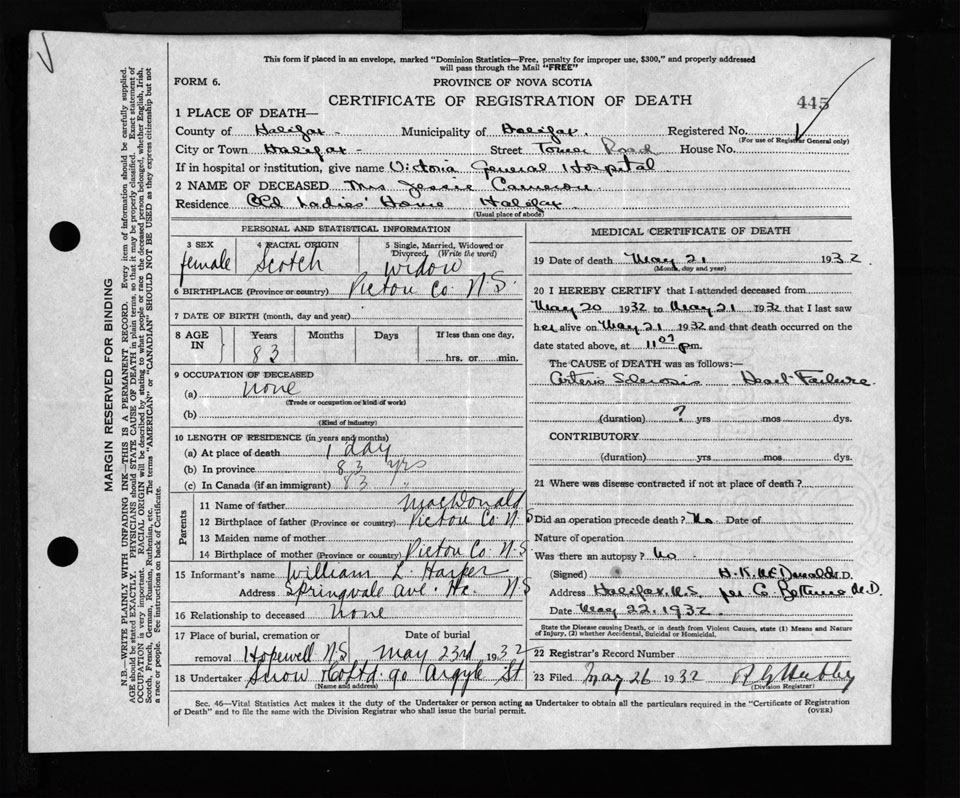 This form if placed in an envelope, marked "Dominion Statistics—Free, penalty for improper use, $300," and properly addressed
will pass through the Mail "FREE"
FORM 6.
PROVINCE OF NOVA SCOTIA
CERTIFICATE OF REGISTRATION OF DEATH
445
1 PLACE OF DEATH—
County of Halifax Municipality of Halifax. Registered No.
(For use of Registrar General only)
City or Town Halifax Street Tower Road House No.
If in hospital or institution, give name Victoria General Hospital
2 NAME OF DECEASED Mrs Jessie Cameron
Residence Old Ladies' Home Halifax
(Usual place of abode)
PERSONAL AND STATISTICAL INFORMATION
3 SEX 4 RACIAL ORIGIN 5 Single, Married, Widowed or
Divorced, (Write the word)
female Scotch widow
6 BIRTHPLACE (Province or country) Pictou Co. N.S.
7 DATE OF BIRTH (month, day and year)
8 AGE IN Years Months Days If less than one day,
83 hrs. or min.
9 OCCUPATION OF DECEASED
(a) none
(Trade or occupation or kind of work)
(b)
(Kind of industry)
10 LENGTH OF RESIDENCE (in years and months)
(a) At place of death 1 day
(b) In province 83 yrs
(c) In Canada (if an immigrant) 83 "
Parents
11 Name of father MacDonald
12 Birthplace of father (Province or country) Pictou Co. N.S
13 Maiden name of mother
14 Birthplace of mother (Province or country) Pictou Co. N.S.
15 Informant's name William L. Harper
Address Springvale Ave. Hx. N S
16 Relationship to deceased none
17 Place of burial, cremation or Date of burial
removal Hopewell N.S May 23rd 1932
18 Undertaker Snow Co Ltd. 90 Argyle St
(Name and address)
MEDICAL CERTIFICATE OF DEATH
19 Date of death May 21 1932
(Month, day and year)
20 I HEREBY CERTIFY that I attended deceased from
May 20 1932 to May 21 1932 that I last saw
her alive on May 21 1932 and that death occurred on
date stated above, at 11 pm.
The CAUSE OF DEATH was as follows:—
Arterio Sclerosis Heart Failure.
(duration) ? yrs mos dys.
CONTRIBUTORY
(duration) yrs mos dys.
21 Where was disease contracted if not at place of death?
Did an operation precede death? No Date of
Nature of operation
Was there an autopsy? No
(Signed) H.K. McDonald M.D.
Address Halifax N.S. per M.D.
Date May 22, 1932
State the Disease causing Death, or in death from Violent Causes, state (1) Means and
Nature of Injury, (2) whether Accidental, Suicidal or Homicidal.
22 Registrar's Record Number
23 Filed May 26 1932
(Division Registrar)
Sec. 46—Vital Statistics Act makes it the duty of the Undertaker or person acting as Undertaker to obtain all the particulars required in the "Certificate of Registration
of Death" and to file the same with the Division Registrar who shall issue the burial permit.
(OVER)
MARGIN RESERVED FOR BINDING
N.B.—WRITE PLAINLY WITH UNFADING INK—THIS IS A PERMANENT RECORD. Every item of information should be carefully supplied.
AGE should be stated EXACTLY. PHYSICIANS should STATE CAUSE OF DEATH in plain terms, so that it may be properly classified. Exact statement of
OCCUPATION is very important. RACIAL ORIGIN will be described by stating to what people or race the deceased person belonged, whether English, Irish,
Scotch, French, German, Russian, Ruthenian, etc. The terms "AMERICAN" or "CANADIAN" SHOULD NOT BE USED as they express citizenship but not
a race or people. See instructions on back of Certificate.